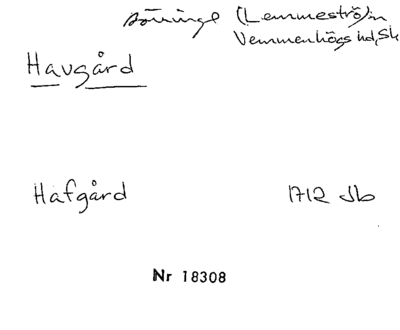 Börringe (Lemmeströ) in
Vemmenhögs hd, Sk
Havgård
Hafgård 1712 Jb
Nr 18308